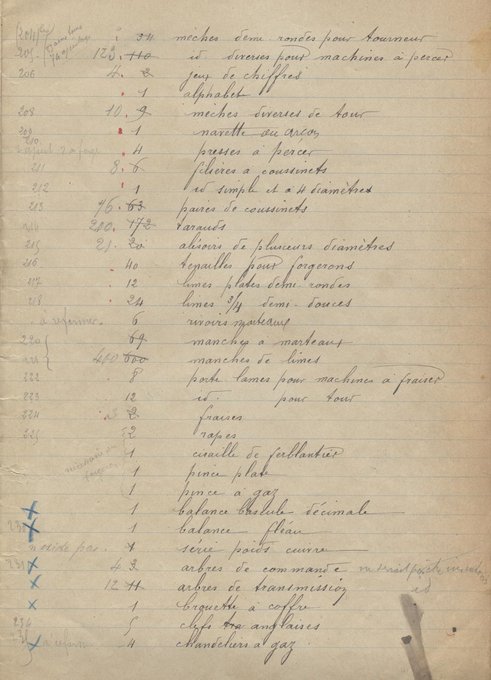 204 34 mèches demi-rondes pour tourneur
205 123 110 id diverses pour machines à percer
206 4 2 jeux de chiffres
1 alphabet
208 10 9 mèches diverses de tour
209 1 navette ou arçon
210 4 presses à percer
211 8 6 filières à coussinets
212 1 id simple et à 4 diamètres
213 76 63 paires de coussinets
214 200 172 tarauds
215 21 20 alisoirs de plusieurs diamètres
216 40 tenailles pour forgerons
217 12 limes plates demi-rondes
218 24 limes 3/4 demi-douces
à réformer 6 rivoirs marteaux
220 69 manches à marteaux
221 400 600 manches de limes
222 8 porte lames pour machines à fraiser
223 12 id. pour tour
224 3 2 fraises
225 2 rapes
1 cisaille de ferblantier
1 pince plate
1 pince à gaz
x 1 balance bascule décimale
x 1 balance fléau
n'existe pas 1 série poids cuivre
231 x 4 3 arbres de commande
x 12 11 arbres de transmission id
x 1 brouette à coffre
234 5 clefs anglaises
235 x à réformer 4 chandeliers à gaz